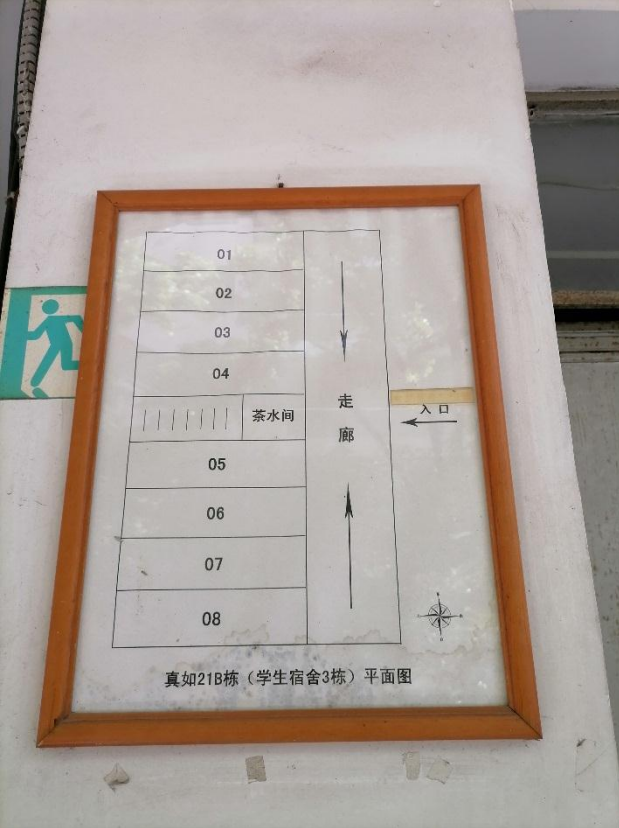 01
02
03
04
茶水间
05
06
07
08
走
廊
入口
真如21B栋（学生宿舍3栋）平面图